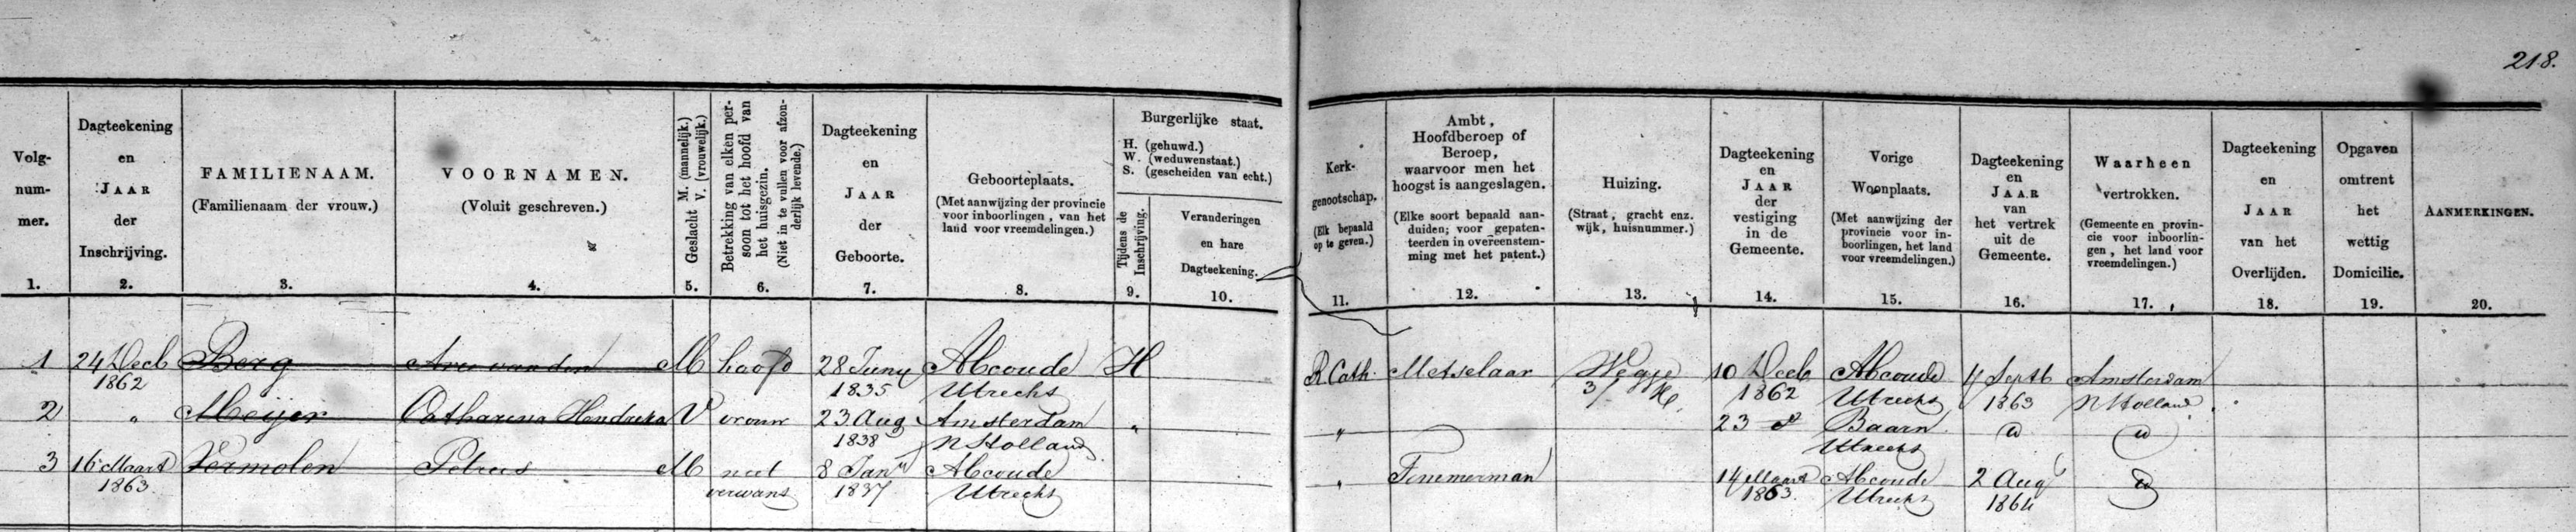 218.
Volg-
num-
mer.
1.
Dagteekening
en
JAAR
der
Inschrijving.
2.
FAMILIENAAM.
(Familienaam der vrouw.)
3.
VOORNAMEN.
(Voluit geschreven.)
4.
Geslacht M. (mannelijk.)
V. (vrouwelijk.)
5.
Betrekking van elken per-
soon tot het hoofd van
het huisgezin.
(Niet in te vullen voor afzon-
derlijk levende.)
6.
Dagteekening
en
JAAR
der
Geboorte.
7.
Geboorteplaats.
(Met aanwijzing der provincie
voor inboorlingen, van het
land voor vreemdelingen.)
8.
Burgerlijke staat.
H. (gehuwd.)
W. (weduwenstaat.)
S. (gescheiden van echt.)
Tijdens de
Inschrijving.
9.
Veranderingen
en hare
Dagteekening.
10.
Kerk-
genootschap.
(Elk bepaald
op te geven.)
11.
Ambt,
Hoofdberoep of
Beroep,
waarvoor men het
hoogst is aangeslagen.
(Elke soort bepaald aan-
duiden; voor gepaten-
teerden in overeenstem-
ming met het patent.)
12.
Huizing.
(Straat, gracht enz.
wijk, huisnummer.)
13.
Dagteekening
en
JAAR
der
vestiging
in de
Gemeente.
14.
Vorige
Woonplaats.
(Met aanwijzing der
provincie voor in-
boorlingen, het land
voor vreemdelingen.)
15.
Dagteekening
en
JAAR
van
het vertrek
uit de
Gemeente.
16.
Waarheen
vertrokken.
(Gemeente en provin-
cie voor inboorlin-
gen, het land voor
vreemdelingen.)
17.
Dagteekening
en
JAAR
van het
Overlijden.
18.
Opgaven
omtrent
het
wettig
Domicilie.
19.
AANMERKINGEN.
20.
1 24 Decb Berg van den M hoofd 28 Juny Abcoude H R. Cath. Metselaar 10 Decb Abcoude 4 Septb Amsterdam
1862 1835 Utrecht 1862 Utrecht 1863 N Holland
2 " Meijer Catharina Hendrika V vrouw 23 Aug Amsterdam " " 23 Baarn
1838 N Holland Utrecht
3 16 Maart Vermolen Petrus M niet 8 Jan Abcoude " Timmerman 14 Maart Abcoude 2 Aug
1863 verwant 1837 Utrecht 1863. Utrecht 1864